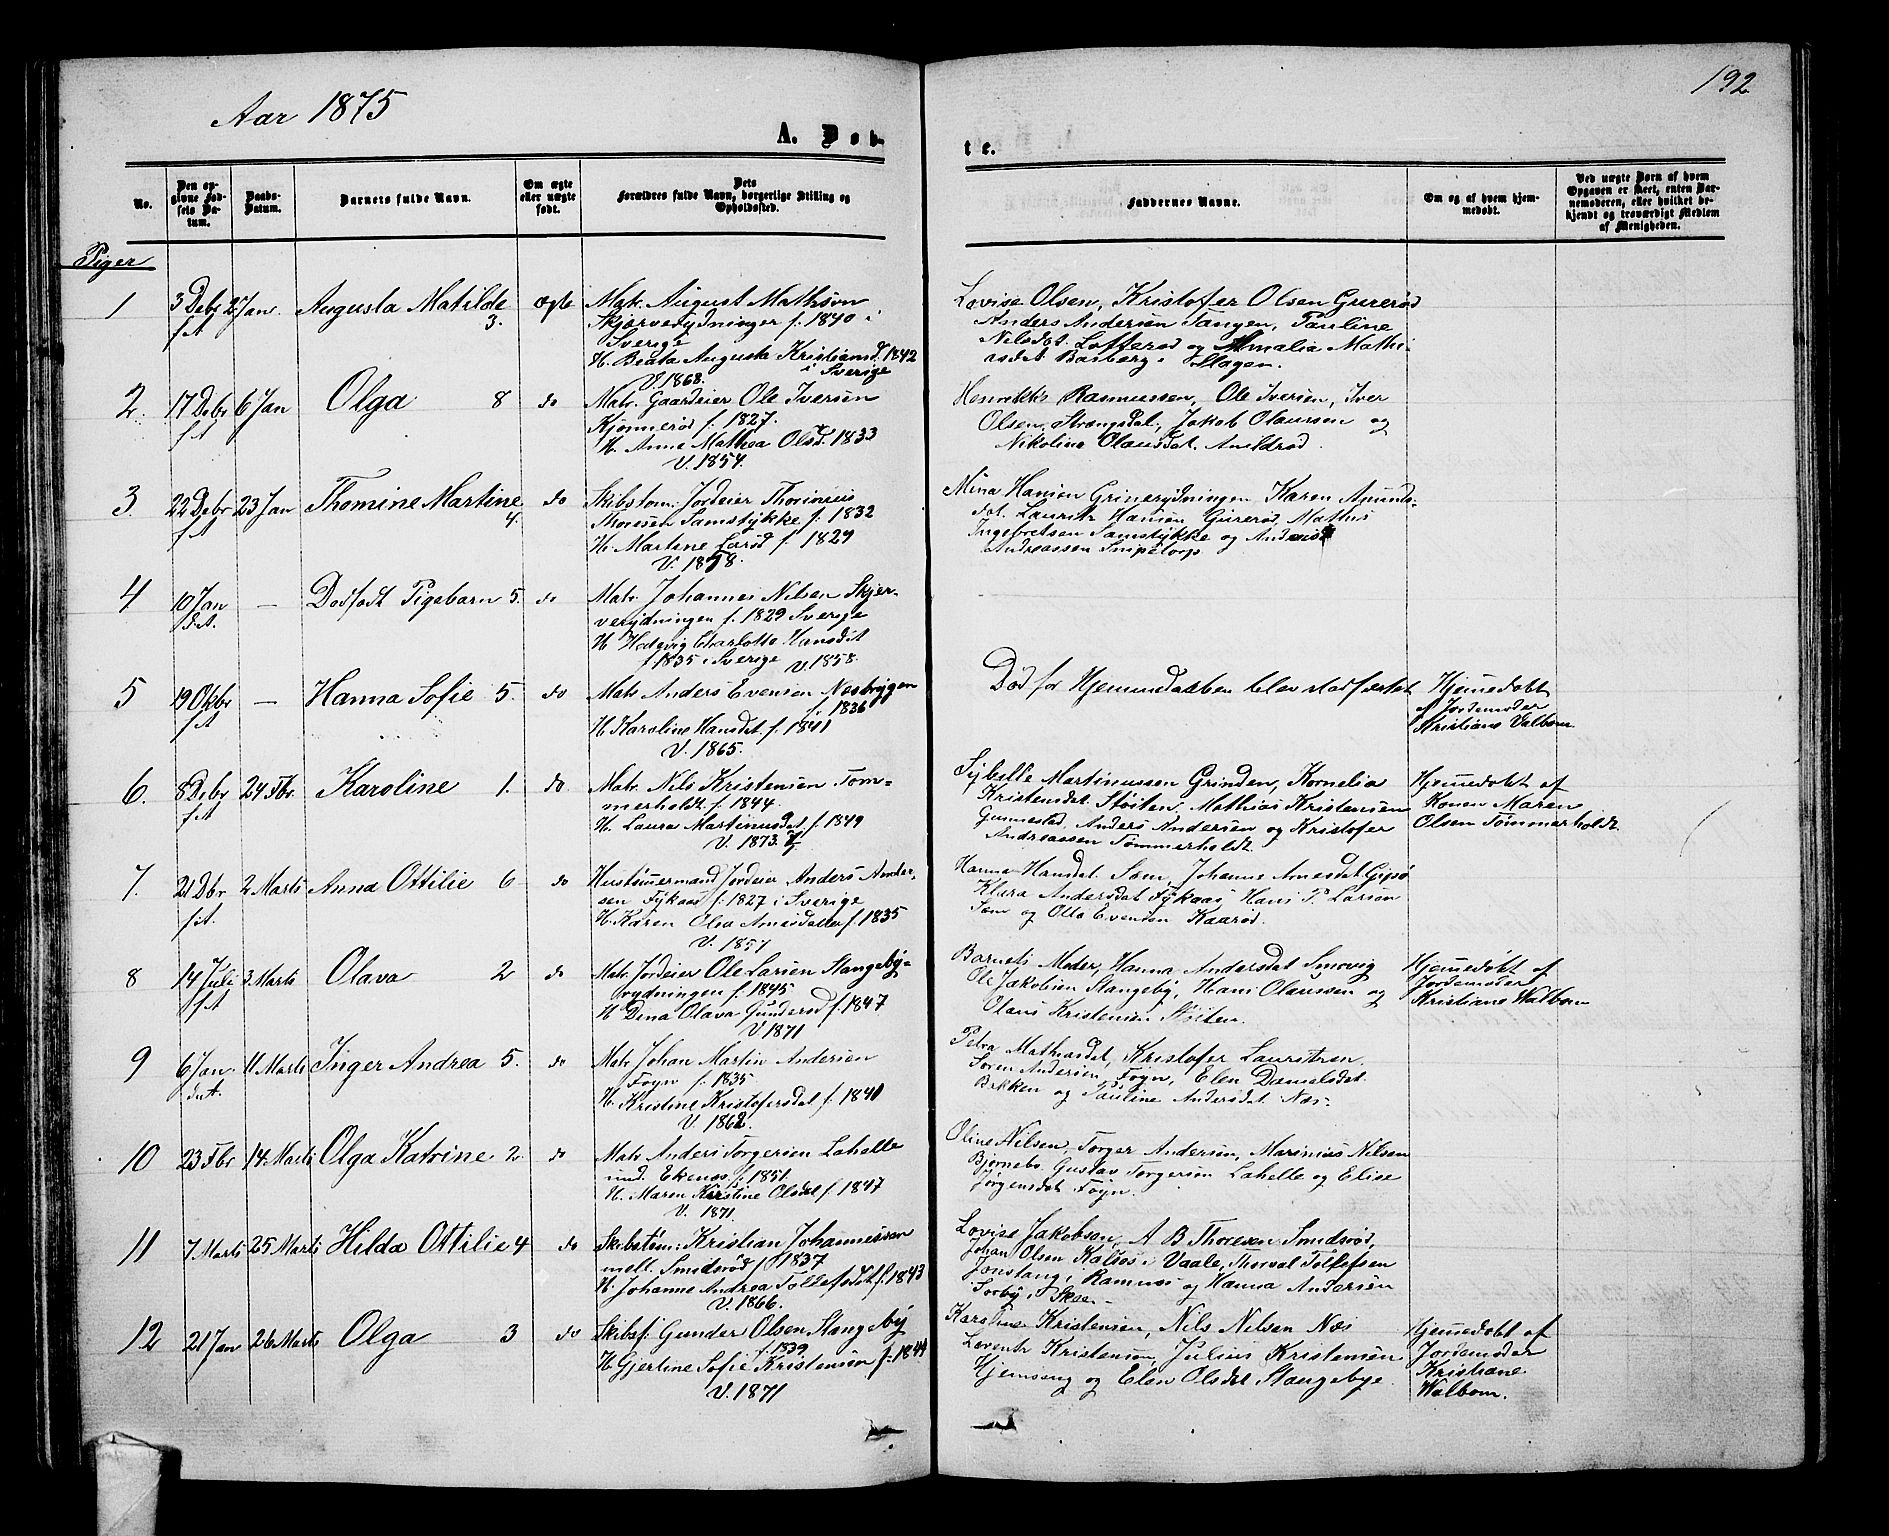 192
Aar 1875
A. Døb-
te.
No.
Den op-
givne Fød-
sels Da-
tum.
Daabs-
Datum.
Barnets fulde Navn.
Om ægte
eller uægte
født.
Dets
Forældres fulde Navn, borgerlige Stilling og
Opholdssted.
Faddernes Navne.
Om og af hvem hjem-
medøbt.
Ved uægte Børn af hvem
Opgaven er skeet, enten Bar-
nemoderen, eller hvilket be-
kjendt og troværdigt Medlem
af Menigheden.
Piger
1 3 Debr 2 Jan Augusta Matilde 3. ægte Mat. August Mathson
f. A
Skjærverydninger f. 1840 i
Sverige
H. Beata Augusta Kristiansd. 1842
i Sverige
V. 1868.
Lovise Olsen, Kristofer Olsen Gurerød
Anders Andersen Tangen, Pauline
Nilsdat. Lofterød og Amalia Mathi-
asdat Basberg i Slagen.
2. 17 Debr 6 Jan Olga 8 do Matr. Gaardeier Ole Iversen
f A
Kjønnerød f. 1827.
H. Anne Mathea Olsd. 1833
V. 1854.
Rasmussen, Ole Iversen, Iver
Olsen, Strengsdal, Jakob Olaussen og
Nikoline Olausdat.
3. 22 Debr 23 Jan Thomine Martine 4. do Skibstøm: Jordeier
f A
Thoresen Samstykke f. 1832
H. Martine Larød f. 1829
V. 1858.
Mina Hansen Grinerydningen Karen Amunds-
dat. Lauritz Hansen Gurerød, Mathis
Ingebretsen Samstykke og
Andreassen Snipetorp
4 10 Jan — Dødfødt Pigebarn 5. do Matr. Johannes Nilsen Skjer-
d. A.
verydningen f. 1829 Sverige
H. Hedevig Charlotte Hansdat
f 1835 i Sverige V. 1858.
5 19 Okbr — Hanna Sofie 5. do Matr Anders Evensen Nesbryggen
f. A
f. 1836
H. Karoline Hansdat f. 1841
V. 1865.
Død før Hjemmedaaben blev stadfæstet
Hjemmedøbt
af Jordemoder
Kristiane Valbom
6. 8 Debr 24 Fbr Karoline 1. do Matr. Nils Kristensen Tøm-
f A
merholdt f. 1844.
H. Laura Martinusdat f. 1849
V. 1873.
Sybille Martinussen Grinden, Kornelia
Kristensdat Støiten, Mathias Kristensen
Gunnestad, Anders Andersen og Kristofer
Andreassen Tømmerholdt.
Hjemmedøbt af
Konen Maren
Olsen Tømmerholdt.
7. 21 Dbr 2 Marts Anna Ottilie 6 do Hustømmermand Jordeier Anders Ander-
f. A.
sen Fykaas f. 1827 i Sverige
H. Karen Olea Arnesdatter f 1835
V. 1857
Hanna Hansdat. Sæm, Johanne Arnesdat Gipø
Klara Andersdat Fykaas, Hans P. Larsen
Sæm og Otto Evensen Kaarød.
8 14 Juli 3 Marts Olava 2 do Matr Jordeier Ole Larsen Stangeby-
f A
rydningen f. 1845
H Dina Olava Gunderød f. 1847
V 1871
Barnets Moder, Hanna Andersdat Smovig
Ole Jakobsen Stangeby, Hans Olaussen og
Olaus Kristensen Støiten.
Hjemmedøbt af
Jordemoder
Kristiane Walbom
9 6 Jan 11 Marts Inger Andrea 5. do Matr Johan Martin Andersen
d. A.
Føyn f. 1835
H. Kristine Kristofersdat f. 1841
V. 1862.
Petra Mathiasdat, Kristofer Lauritsen
Søren Andersen, Føyn, Elen Danielsdat
Bekken og Pauline Andersdat Næs-
10 23 Fbr 14 Marts Olga Katrine 2 do Matr Anders Torgersen Lahelle
und. Ekenæs f. 1851.
H. Maren Kirstine Olsdat f. 1847
V. 1871.
Oline Nilsen, Torger Andersen, Marinius Nilsen
Bjørnebo Gustav Torgersen Lahelle og Elise
Jørgensdat Føyn.
11 7 Marts 25 Marts Hilda Ottilie 4 do Skibstøm: Kristian Johannessen
mell. Smidsrød f 1837
H. Johanne Andrea Tollefsdat f. 1843
V. 1866.
Lovise Jakobsen, A B Thoresen Smidsrød,
Johan Olsen i Vaale, Thorval Tollefsen
Jonstang i Ramnæs og Hanna Andersen
Sørby i Skee-
12 21 Jan 26 Marts Olga 3 do Skibsf. Gunder Olsen Stangeby
f. 1839
H. Gjertine Sofie Kristensen f. 1844
V. 1871
Karoline Kristensen, Nils Nilsen Næs
Lorents Kristensen, Julius Kristensen
Hjemseng og Elen Olsdat Stangebye.
Hjemmedøbt af
Jordemoder
Kristiane
Walbom.